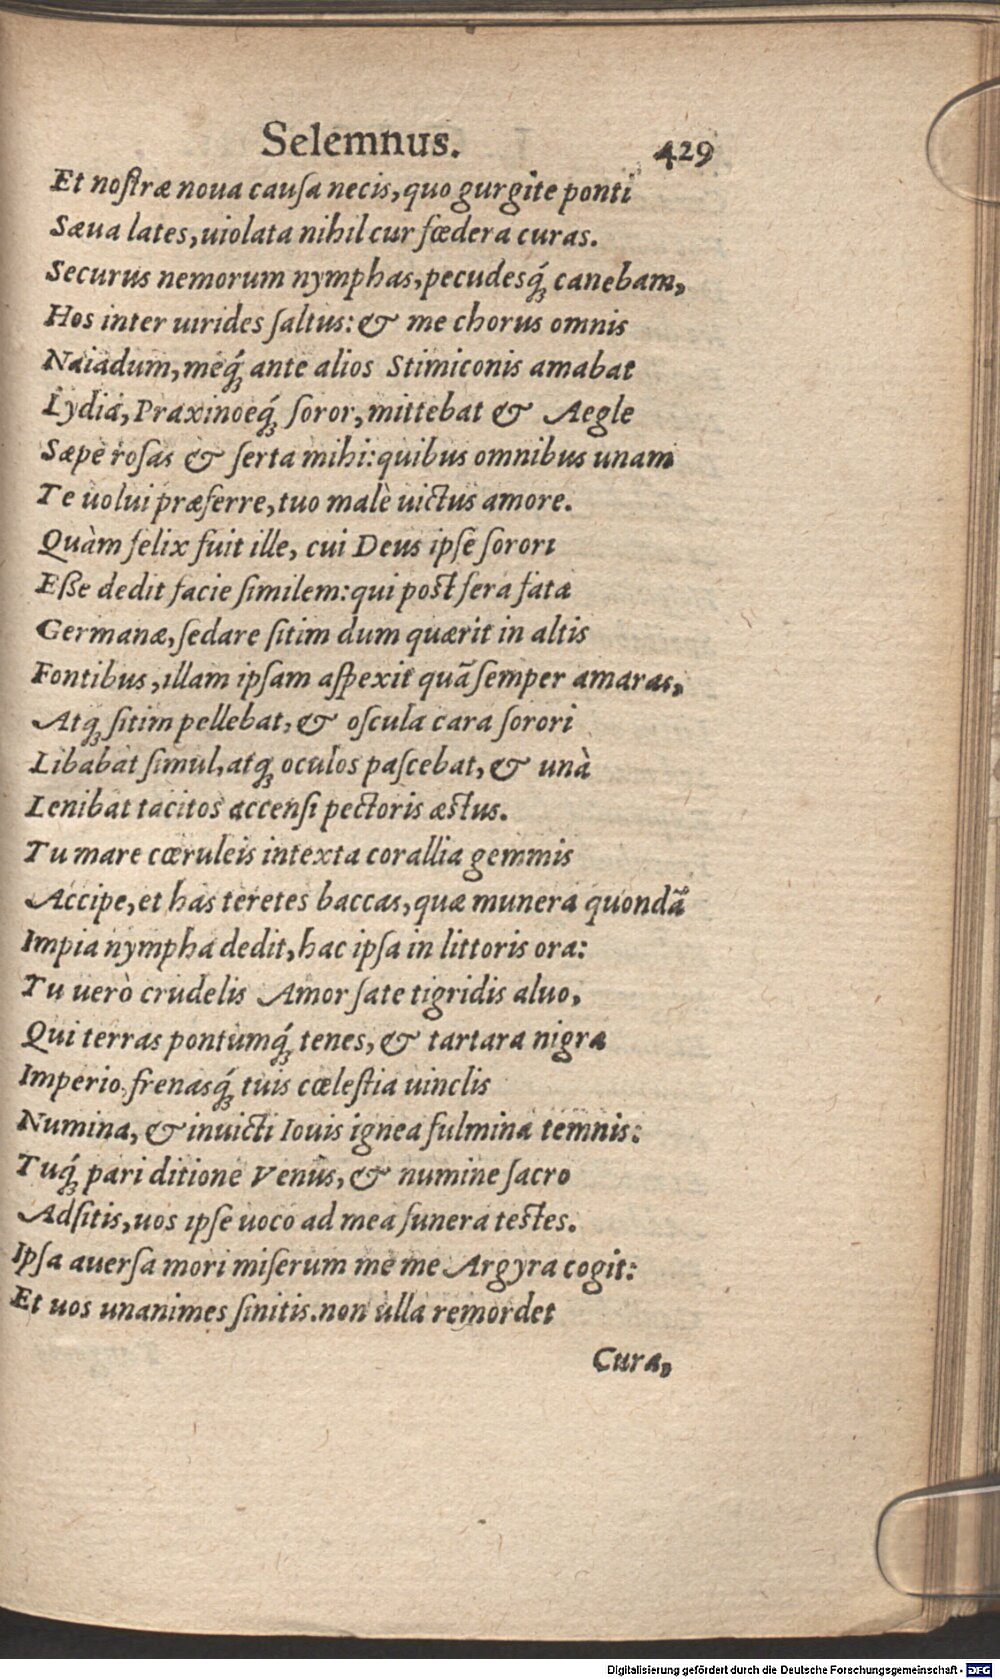 Selemnus. 429
Et noſtræ noua cauſa necis, quo gurgite ponti
Sæua lates, uiolata nihil cur fœdera curas.
Securus nemorum nymphas, pecudesq́; canebam,
Hos inter uirides ſaltus: & me chorus omnis
Naiadum, meq́; ante alios Stimiconis amabat
Lydia, Praxinoeq́; ſoror, mittebat & Aegle
Sæpe roſas & ſerta mihi: quibus omnibus unam
Te uolui præferre, tuo malè uictus amore.
Quàm felix fuit ille, cui Deus ipſe ſorori
Eſſe dedit facie ſimilem: qui poſt fera fata
Germanæ, ſedare ſitim dum quærit in altis
Fontibus, illam ipſam aſpexit quã ſemper amaras,
Atq; ſitim pellebat, & oſcula cara ſorori
Libabat ſimul, atq; oculos paſcebat, & unà
Lenibat tacitos accenſi pectoris æſtus.
Tu mare cœruleis intexta corallia gemmis
Accipe, et has teretes baccas, quæ munera quondã
Impia nympha dedit, hac ipſa in littoris ora:
Tu uerò crudelis Amor ſate tigridis aluo,
Qui terras pontumq́; tenes, & tartara nigra
Imperio, frenasq́; tuis cœleſtia uinclis
Numina, & inuicti Iouis ignea fulmina temnis:
Tuq́; pari ditione Venus, & numine ſacro
Adſitis, uos ipſe uoco ad mea funera teſtes.
Ipſa auerſa mori miſerum me me Argyra cogit:
Et uos unanimes ſinitis. non ulla remordet
Cura,
Digitalisierung gefördert durch die Deutsche Forschungsgemeinschaft - DFG